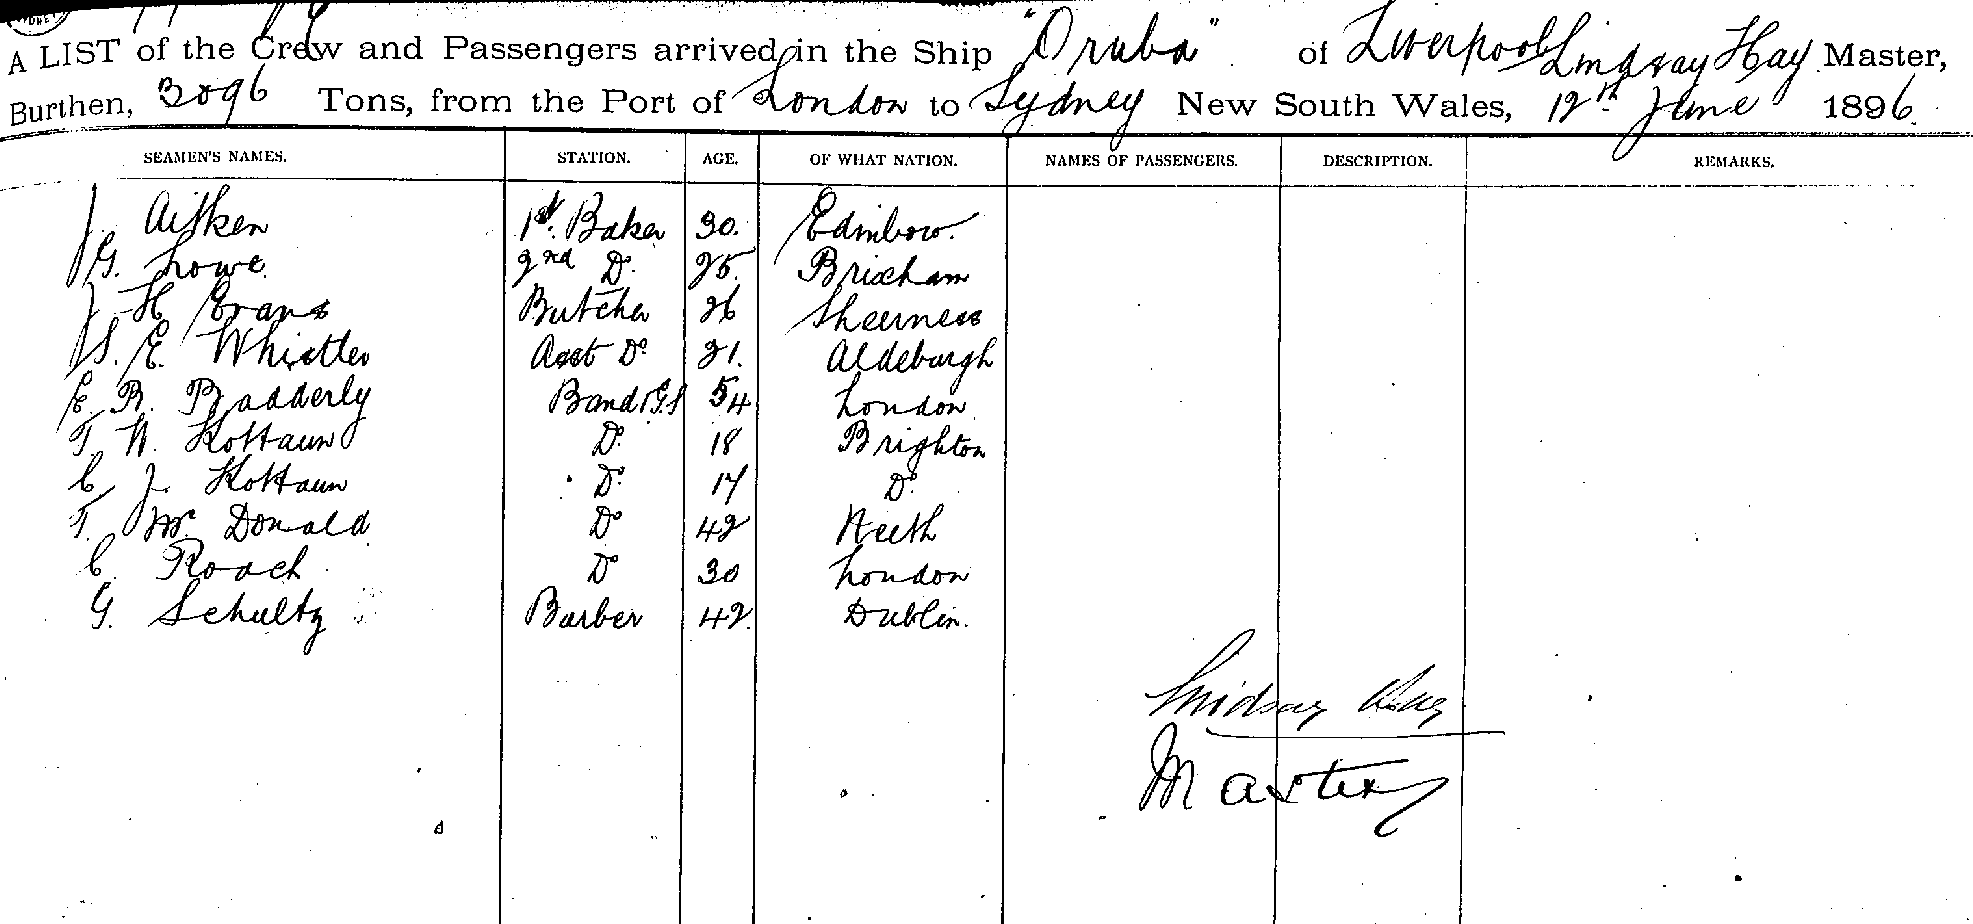 A LIST of the Crew and Passengers arrived in the Ship "Oruba" of Liverpool Lindsay Hay Master,
Burthen, 3096 Tons, from the Port of London to Sydney New South Wales, 12th June 1896.
SEAMEN'S NAMES. STATION. AGE. OF WHAT NATION. NAMES OF PASSENGERS. DESCRIPTION. REMARKS.
J. Aitken 1st. Baker 30. Edinboro.
G. Lowe. 2nd Do. 25. Brixham
J H Evans Butcher 26 Sheerness
S. E. Whistler Asst Do 21. Aldeburgh
E. R. Badderly Band 54 London
T. W. Kottaun Do. 18 Brighton
C J. Kottaun Do. 17 Do.
T. Mc Donald Do 42 Neeth
C. Roach Do 30 London
G. Schultz Barber 42. Dublin.
Lindsay Hay
Master